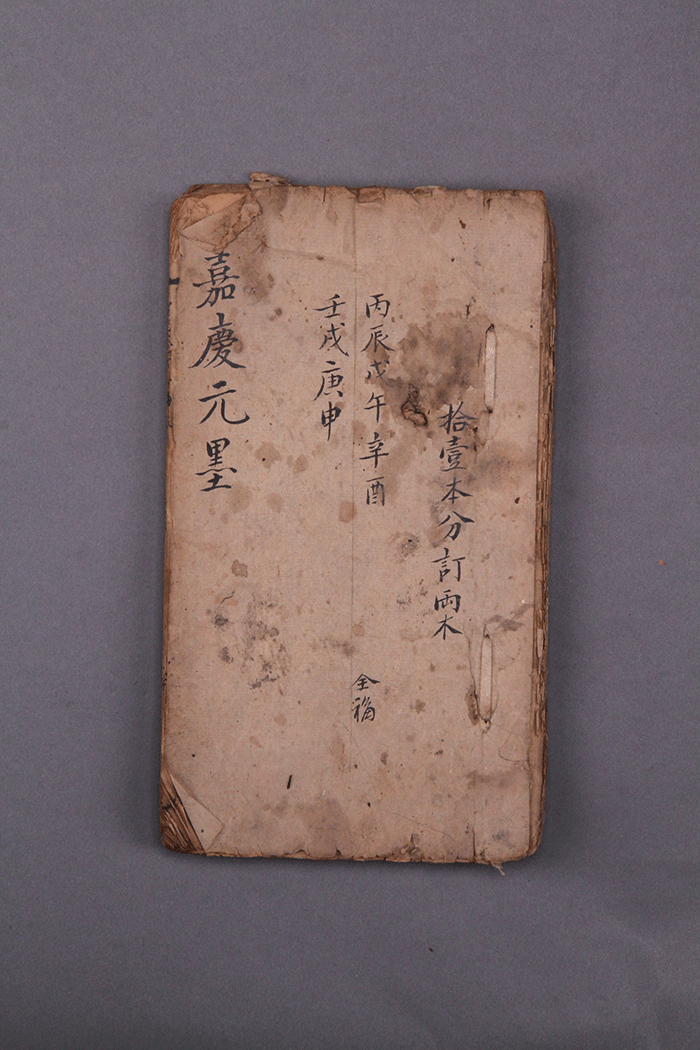 拾壹本分訂兩本
丙辰戊午辛酉
壬戌庚申
全福
嘉慶元墨